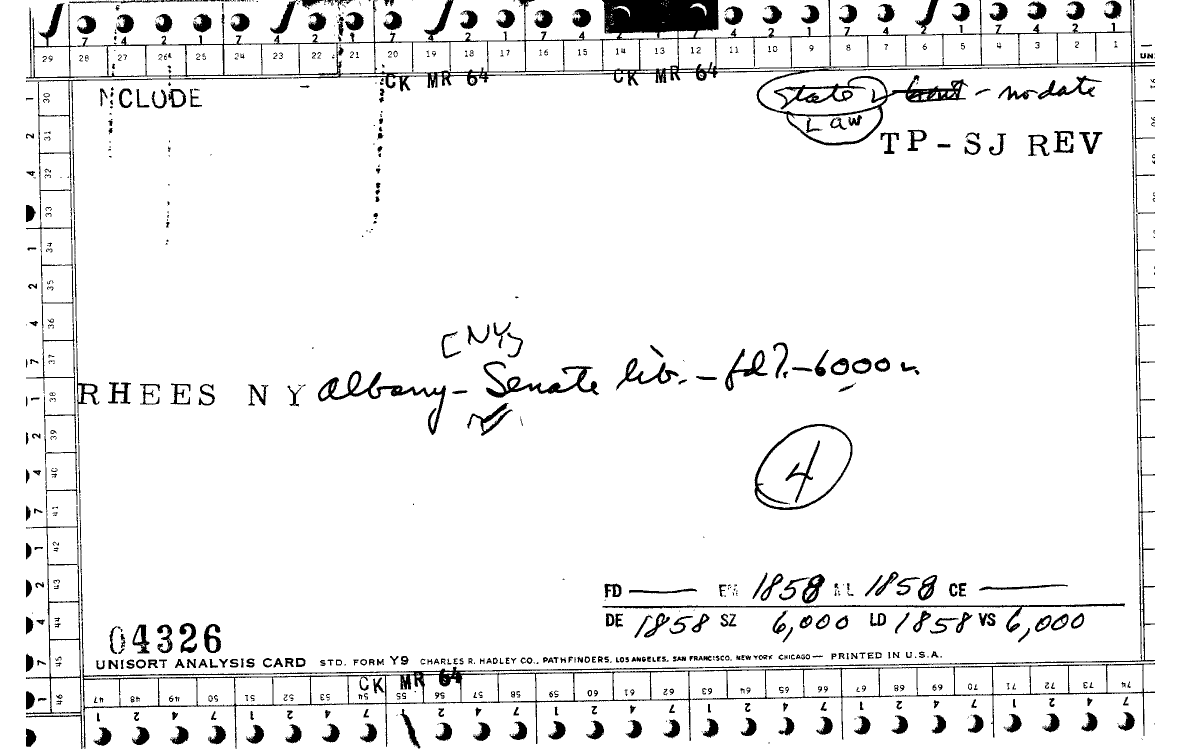 7 4 2 1 7 4 2 1 7 4 2 1 7 4 7 4 2 1 7 4 2 1 7 4 2 1
29 28 27 26 25 24 23 22 21 20 19 18 17 16 15 14 13 12 11 10 9 8 7 6 5 4 3 2 1
CK MR 64 CK MR 64
NCLUDE
State - no date
Law
TP-SJ REV
[NY]
RHEES NY Albany - Senate lib. - fd?. - 6000 v.
4
FD — EM 1858 ML 1858 CE —
DE 1858 SZ 6,000 LD 1858 VS 6,000
04326
UNISORT ANALYSIS CARD STD. FORM Y9 CHARLES R. HADLEY CO., PATHFINDERS, LOS ANGELES, SAN FRANCISCO, NEW YORK CHICAGO — PRINTED IN U.S.A.
CK MR 64
47 48 49 50 51 52 53 54 55 56 57 58 59 60 61 62 63 64 65 66 67 68 69 70 71 72 73 74